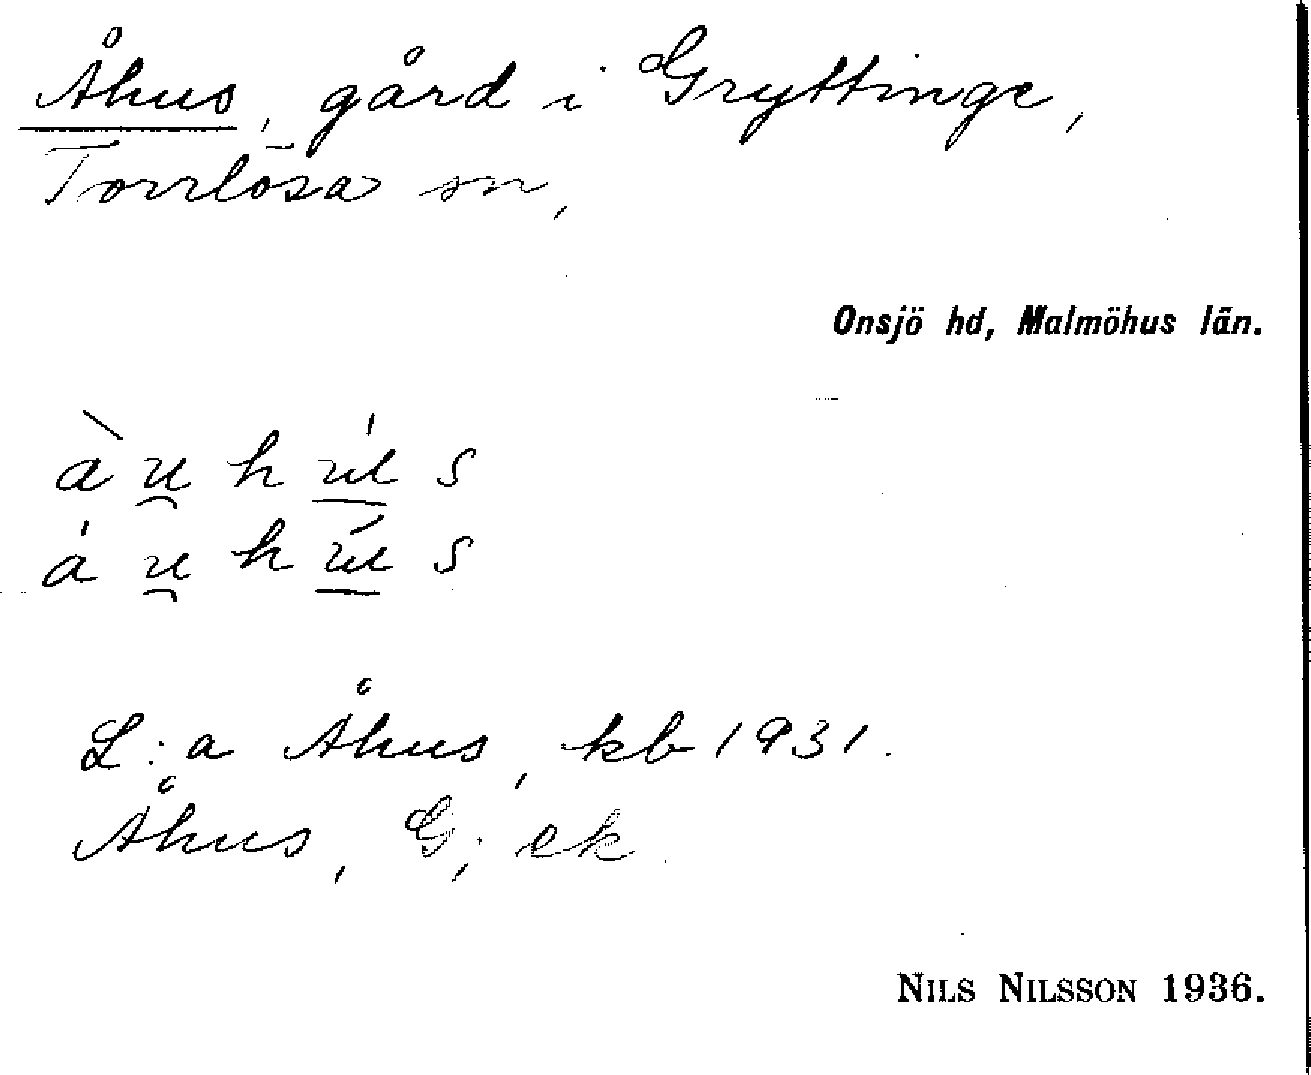 Åhus, gård i Gryttinge,
Torrlösa sn,
Onsjö hd, Malmöhus län.
àu̯ hu̲̍ s
a̍u̯ hú̲ s
L:a Åhus, kb 1931.
Åhus, G; ek.
NILS NILSSON 1936.